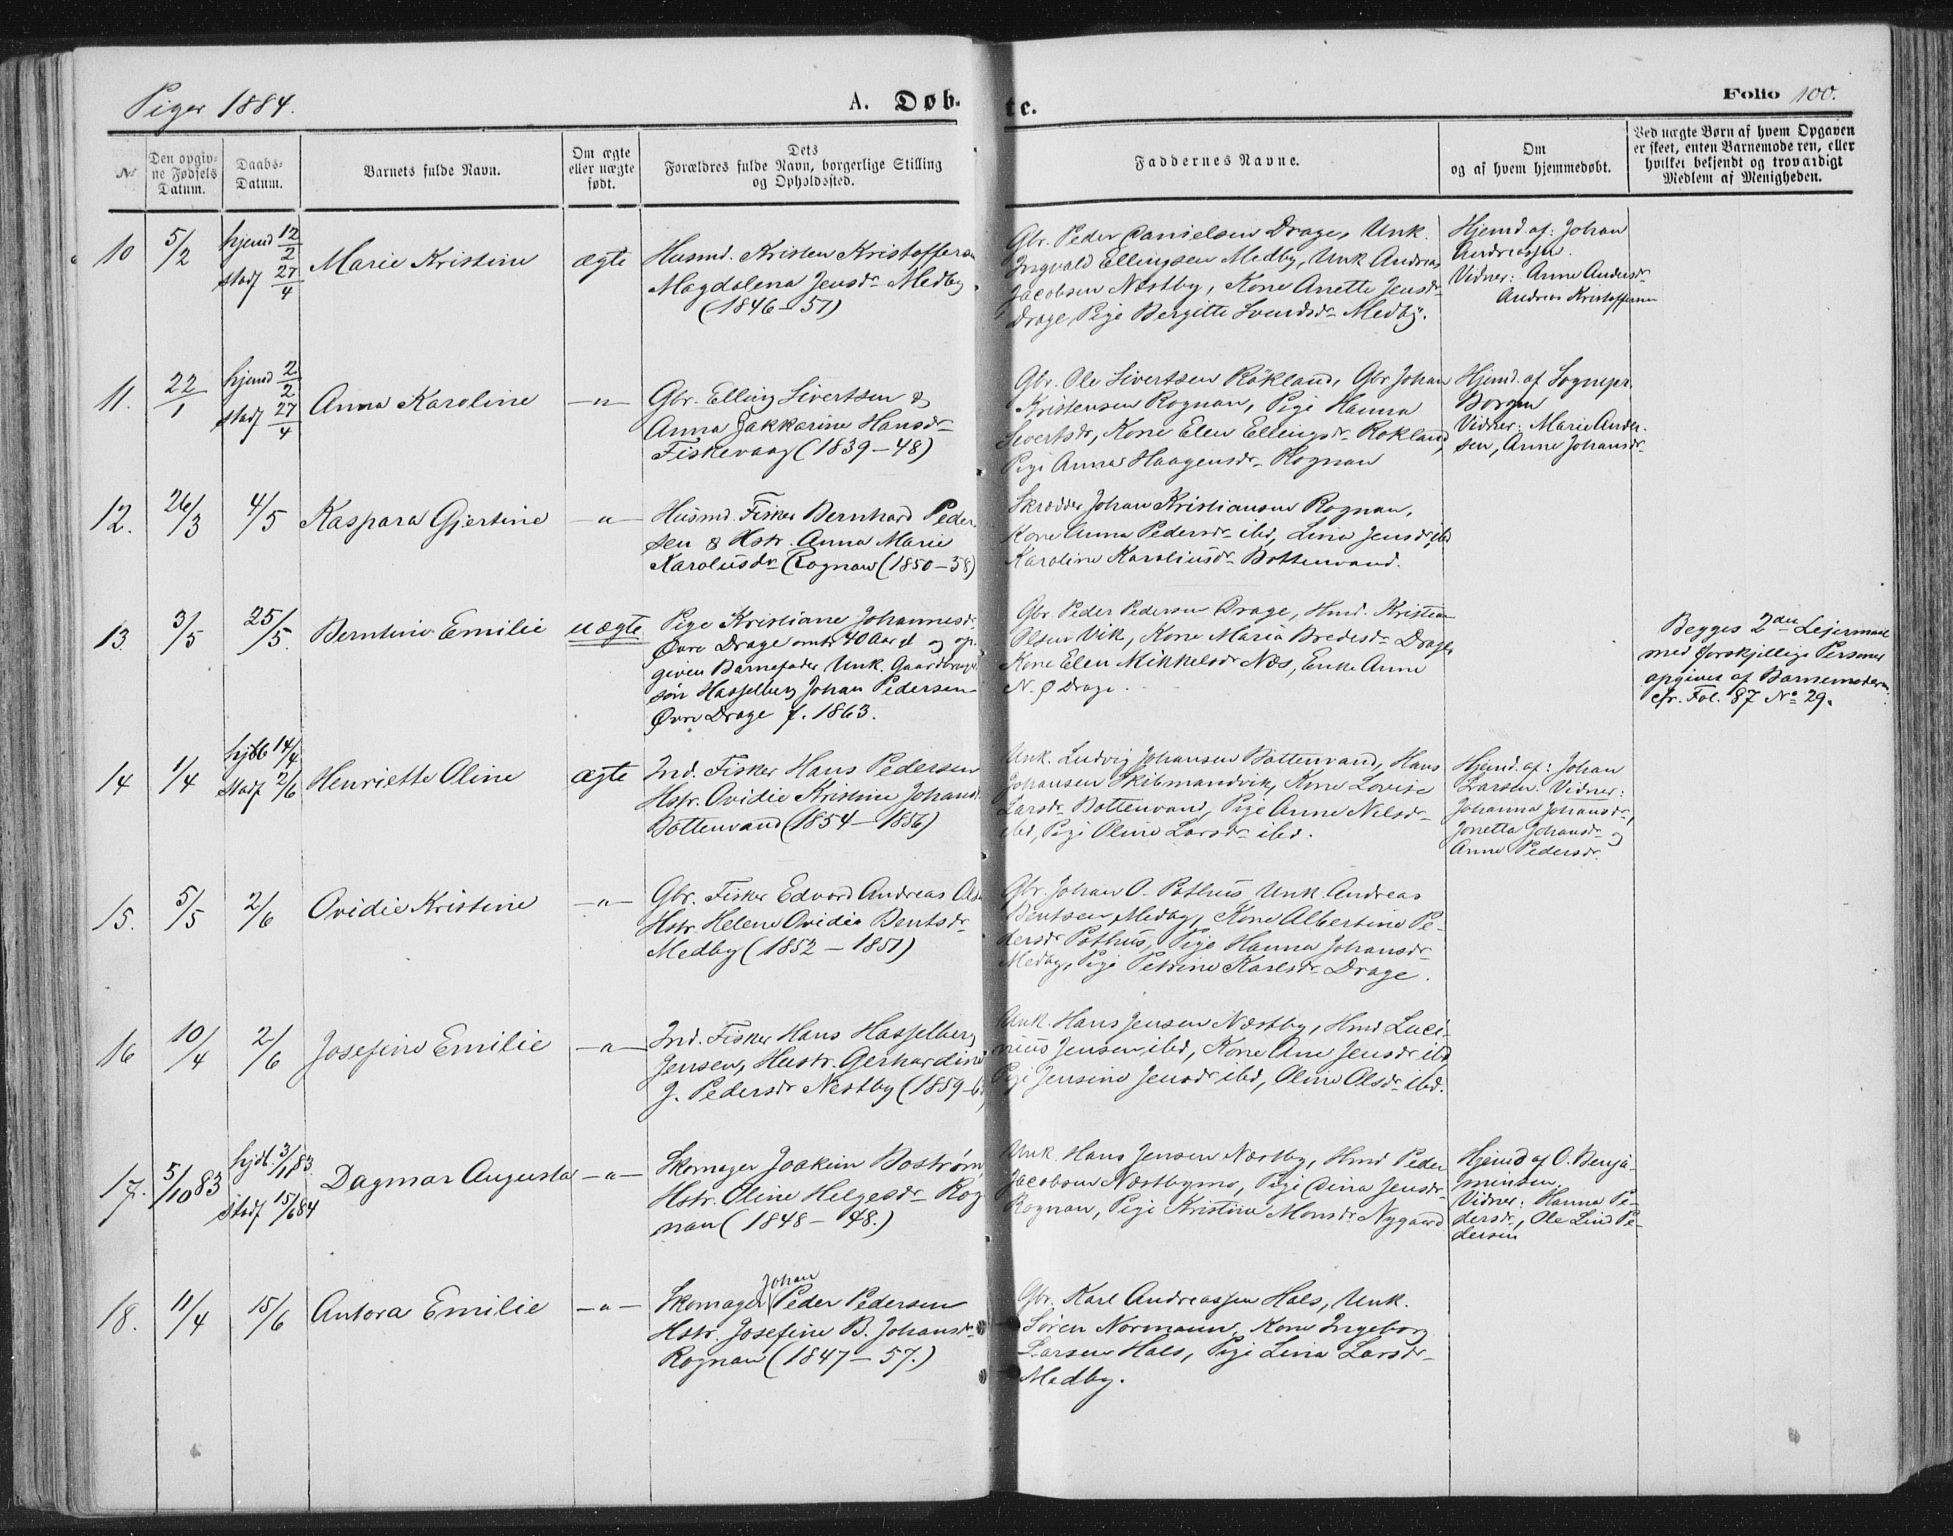 Piger 1884.
A. Døb-
te.
Folio 100.
No
Den opgiv-
ne Fødsels
Datum.
Daabs-
Datum.
Barnets fulde Navn.
Om ægte
eller uægte
født.
Dets
Forældres fulde Navn, borgerlige Stilling
og Opholdssted.
Faddernes Navne.
Om
og af hvem hjemmedøbt.
Ved uægte Børn af hvem Opgaven
er skeet, enten Barnemoderen, eller
hvilket bekjendt og troværdigt
Medlem af Menigheden.
10
5/2
hjemd 12/2
stadf 27/4
Marie Kristine
ægte
Husmd. Kristen Kristoffersen
Magdalena Jensdr Medby
(1846-57)
Gbr. Peder Danielsen Drage, Unk.
Ingvald Ellingsen Medby, Unk Andreas
Jacobsen Næstby, Kone Anette Jensdr
Drage, Pige Bergitte Svendsdr Medby.
Hjemd. af: Johan
Andreassen.
Vidner: Anne Andersdr
Andreas Kristoffersen
11.
22/1
hjemd 2/2
stadf 27/4
Anna Karoline
-"-
Gbr. Elling Sivertsen &
Anna Jakkarine Hansdr
Fiskevaag (1839-48)
Gbr. Ole Sivertsen Rökland, Gbr Johan
Kristensen Rognan, Pige Hanna
Sivertsdr, Kone Elen Ellingsdr Rokland,
Pige Anna Haagensdr Rognan
Hjemd. af Sognepr.
Borgen
Vidner: Marie Ander-
sen, Anne Johansdr
12.
26/3
4/5
Kaspara Gjertine
-"-
Husmd. Fisker Bernhard Peder-
sen & Hstr. Anna Marie
Karolusdr Rognan (1850-58)
Skrædder Johan Kristiansen Rognan,
Kone Anna Pedersdr ibd, Lina Jensdr ibd
Karoline Karoliusdr Bottenvand.
13.
3/5
25/5.
Berntine Emilie
uægte
Pige Kristiane Johannesdr
Øvre Drage omtr 40 Aar gl og op-
given Barnefader Unk. Gaardbruger-
søn Hasselberg Johan Pedersen
Øvre Drage f. 1863.
Gbr. Peder Pedersen Drage, Hmd. Kristian
Olsen Vik, Kone Maria Bredesdr Drage,
Kone Elen Mikkelsdr Næs, Enke Anne
N. Ø Drage.
Begges 2den Lejermaal
med forskjellige Personer
opgivet af Barnemoderen
cfr. Fol. 87 No 29.
14
1/4
hjdb 14/4
stadf 2/6
Henriette Oline
ægte
Ind. Fisker Hans Pedersen
Hstr. Ovidie Kristine Johansdr
Bottenvand (1854-1856)
Unk. Ludvig Johansen Bottenvand, Hans
Johansen Skibmandvik, Kone Lovise
Larsdr Bottenvand, Pige Anne Nelsdr
ibd, Pige Oline Larsdr ibd.
Hjemd. af: Johan
Larsen. Vidner:
Johanna Johansdr,
Jonetta Johansdr og
Anne Pedersdr.
15.
5/5
2/6
Ovidie Kristine
-"-
Gbr. Fisker Edvard Andreas Ols
Hstr. Helene Ovidia Bentsdr
Medby (1852-1851)
Gbr. Johan O. Pothus, Unk. Andreas
Bentsen Medby, Kone Albertine Pe-
dersdr Pothus, Pige Hanna Johansdr
Medby, Pige Petrine Karlsdr Drage.
16
10/4
2/6
Josefine Emilie
-"-
Ind. Fisker Hans Hasselberg
Jensen, Hustr. Gerhardine
J. Pedersdr Nestby (1859-6
Unk. Hans Jensen Næstby, Hmd Luci-
nius Jensen ibd, Kone Ane Jensdr ibd,
Pige Jensine Jensdr ibd, Oline Olsdr ibd.
17.
5/10 83
hjdb. 3/11 83.
stadf 15/6 84
Dagmar Augusta
-"-
Skomager Joakim Boström,
Hstr. Oline Helgesdr Rog
nan (1848-48.)
Unk. Hans Jensen Næstby, Hmd Peder
Jacobsen Næstbymo, Pige Dina Jensdr
Rognan, Pige Kristine Monsdr Nygaard
Hjemd af O. Benja-
minsen
Vidner: Hanna Pe-
dersdr, Ole Lind Pe-
dersen
18.
11/4
15/6
Antora Emilie
-"-
Johan
Skomager Peder Pedersen
Hstr. Josefine B. Johansdr
Rognan (1847-57.)
Gbr. Karl Andreassen Hals, Unk.
Sören Normann, Kone Ingeborg
Larsen Hals, Pige Lina Larsdr
Medby.